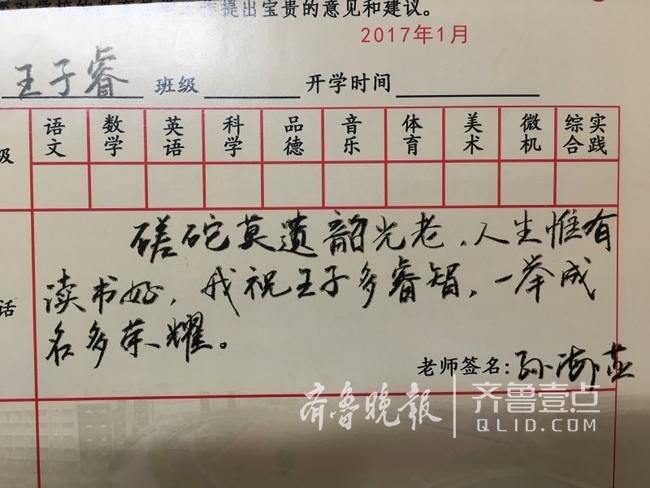 提出宝贵的意见和建议。
2017年1月
王子睿 班级 开学时间
级 语文 数学 英语 科学 品德 音乐 体育 美术 微机 综合实践
磋砣莫遗韶光老,人生惟有
话 读书好,我祝王子多睿智,一举成
名多荣耀。
老师签名:孙
齐鲁晚报 齐鲁壹点
QLID.COM